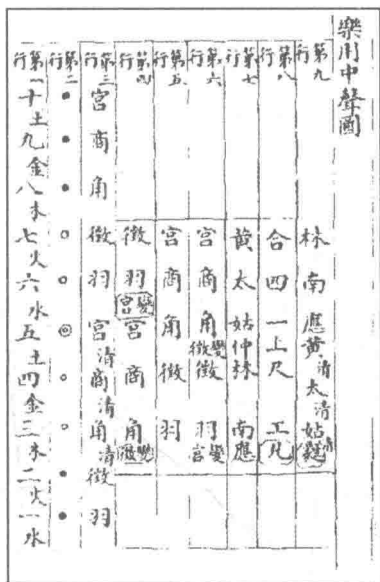 樂用中聲圖
第九行 林 南 應 黃清 太清 姑清
第八行 合 四 一 上 尺 工 凡
第七行 黃 太 姑 仲 林 南 應
第六行 宮 商 角 變徵 徵 羽 變宮
第五行 宮 商 角 徵 羽
第四行 徵 羽 變宮 宮 商 角 變徵
第三行 宮 商 角 徵 羽 宮清 商清 角清 徵 羽
第二行 ● ● ● ○ ○ ◎ ○ ○ ● ●
第一行 十土九金八木七火六水五土四金三木二火一水